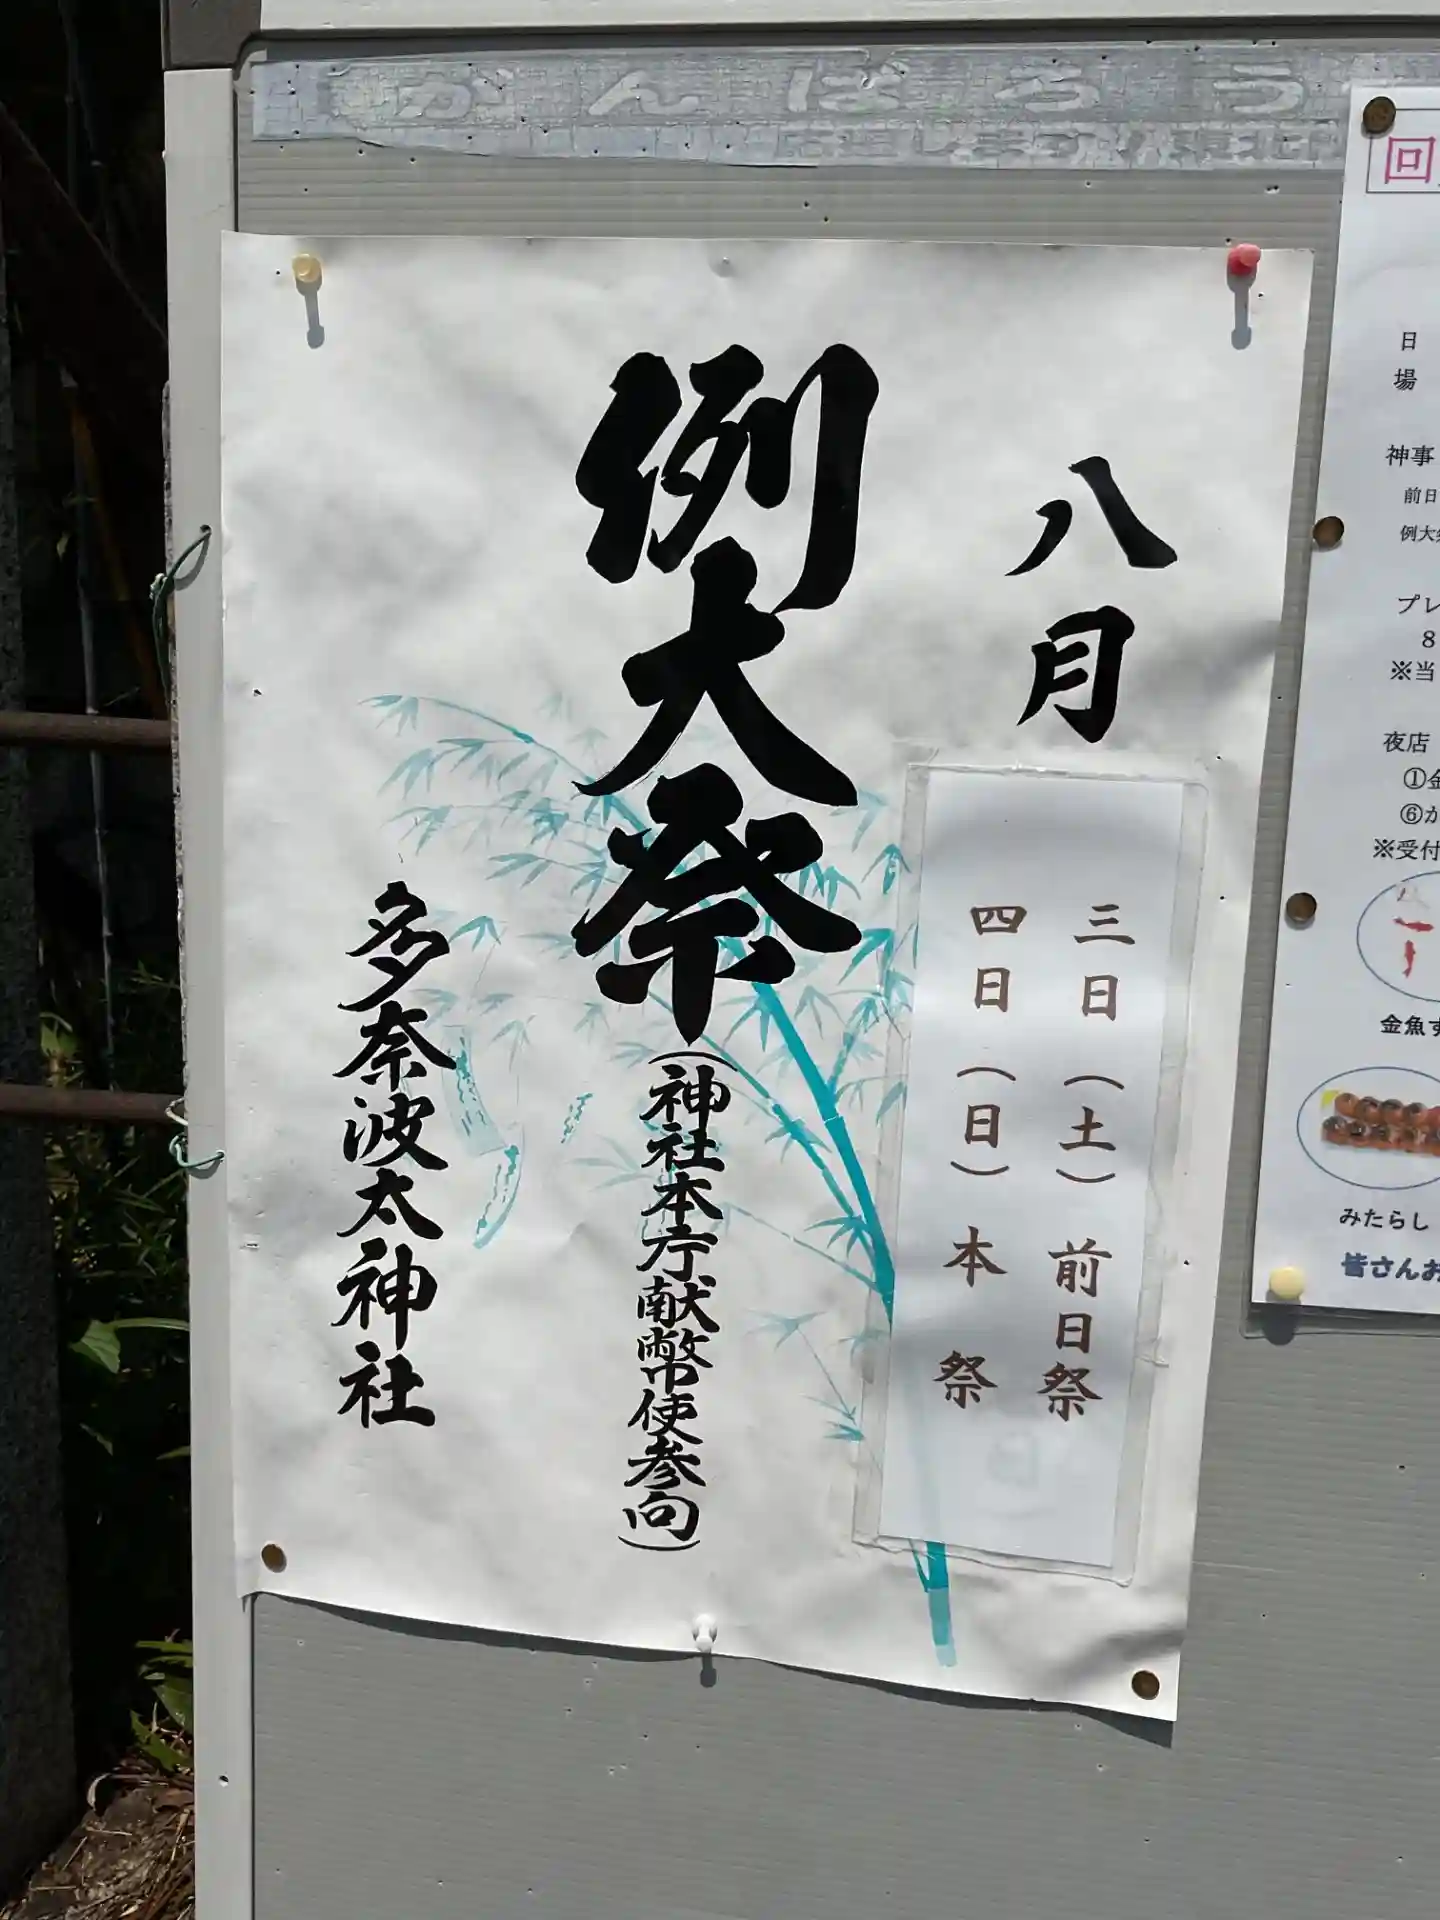 がんばろう
八月
三日（土）前日祭
四日（日）本祭
例大祭（神社本庁献幣使参向）
多奈波太神社
回
日
場
神事
前日
例大祭
プレ
8
※当
夜店
①金
⑥か
※受付
金魚す
みたらし
皆さんお